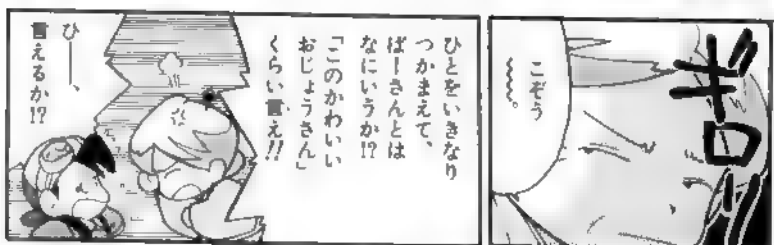 ギロー
こぞう
〜〜。
ひとをいきなり
つかまえて、
ばーさんとは
なにいうか!?
「このかわいい
おじょうさん」
くらい言え!!
ひー、
言えるか!?